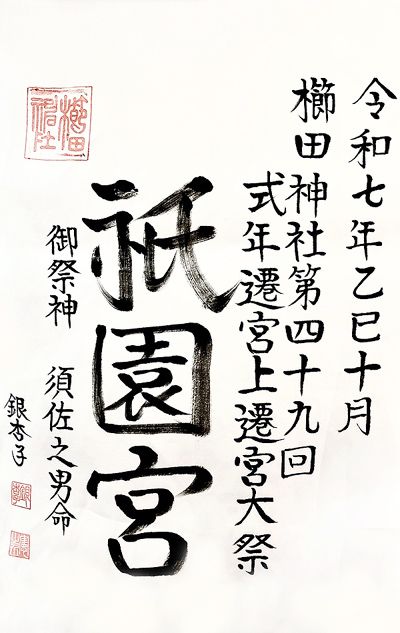 令和七年乙巳十月
櫛田神社第四十九回
式年遷宮上遷宮大祭
祇園宮
御祭神 須佐之男命
銀杏子
櫛田